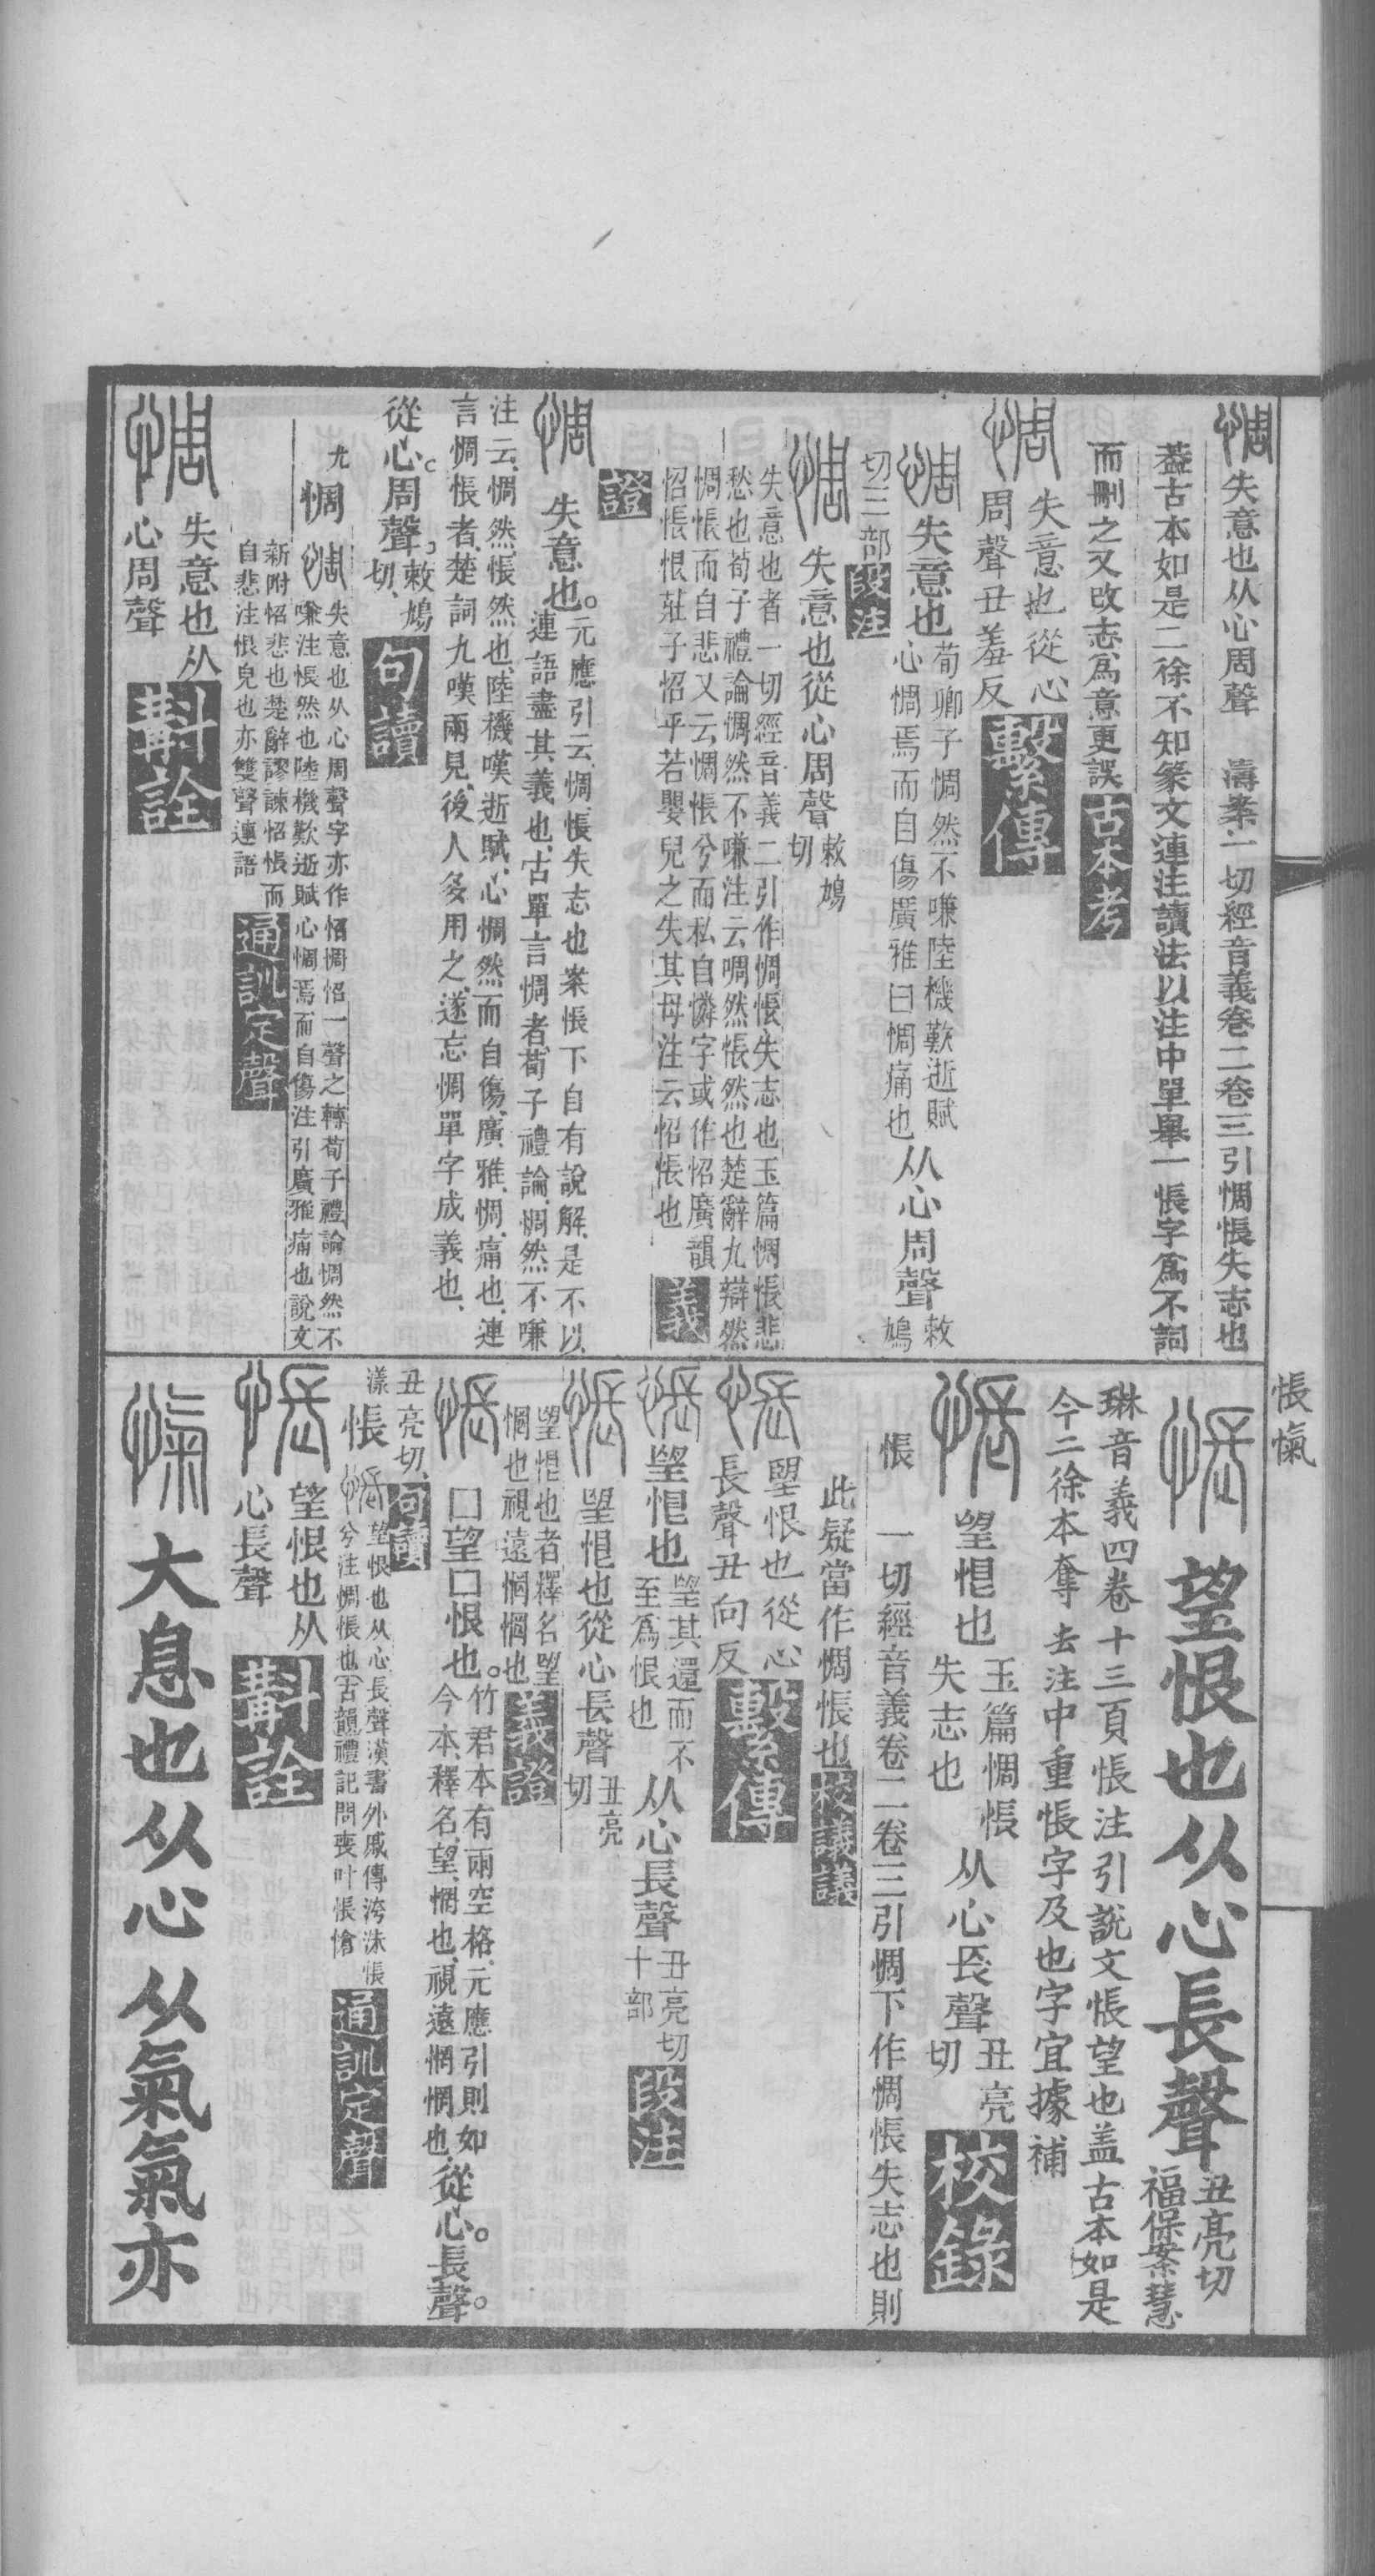 惆失意也从心周聲　濤案一切經音義卷二卷三引惆悵失志也
葢古本如是二徐不知篆文連注讀法以注中單舉一悵字爲不詞
而刪之又改志爲意更誤古本考
惆失意也從心
周聲丑羞反繫傳
惆失意也荀卿子惆然不嗛陸機歎逝賦
心惆焉而自傷廣雅曰惆痛也从心周聲敕鳩
切三部段注
惆失意也從心周聲敕鳩
切
失意也者一切經音義二引作惆悵失志也玉篇惆悵悲
愁也荀子禮論惆然不嗛注云惆然悵然也楚辭九辯然
惆悵而自悲又云惆悵兮而私自憐字或作怊廣韻
怊悵恨莊子怊乎若嬰兒之失其母注云怊悵也義
證
惆失意也。元應引云、惆、悵失志也案悵下自有說解、是不以
連語盡其義也、古單言惆者、荀子禮論、惆然不嗛
注云、惆然、悵然也、陸機嘆逝賦、心惆然而自傷、廣雅、惆、痛也、連
言惆悵者、楚詞九嘆兩見、後人多用之、遂忘惆單字成義也、
從心。周聲。敕鳩
切、句讀
尤
惆惆失意也从心周聲字亦作怊惆怊一聲之轉荀子禮論惆然不
嗛注悵然也陸機歎逝賦心惆焉而自傷注引廣雅痛也說文
新附怊悲也楚辭謬諫怊悵而
自悲注恨皃也亦雙聲連語通訓定聲
惆失意也从
心周聲斠詮
悵望恨也从心長聲丑亮切
福保案慧
琳音義四卷十三頁悵注引說文悵望也盖古本如是
今二徐本奪去注中重悵字及也字宜據補
悵望恨也玉篇惆悵
失志也从心長聲丑亮
切校錄
悵　一切經音義卷二卷三引惆下作惆悵失志也則
此疑當作惆悵也校議議
悵望恨也從心
長聲丑向反繫傳
悵望恨也望其還而不
至爲恨也从心長聲丑亮切
十部段注
悵望恨也從心長聲丑亮
切
望恨也者釋名望
惘也視遠惘惘也義證
悵囗望囗恨也。竹君本有兩空格、元應引則如
今本、釋名、望、惘也、視遠惘惘也、從心。長聲。
丑亮切、句讀
漾
悵悵望恨也从心長聲漢書外戚傳洿沬悵
兮注惆悵也〔古韻〕禮記問喪叶悵愴通訓定聲
悵望恨也从
心長聲斠詮
愾大息也从心从氣氣亦
悵愾